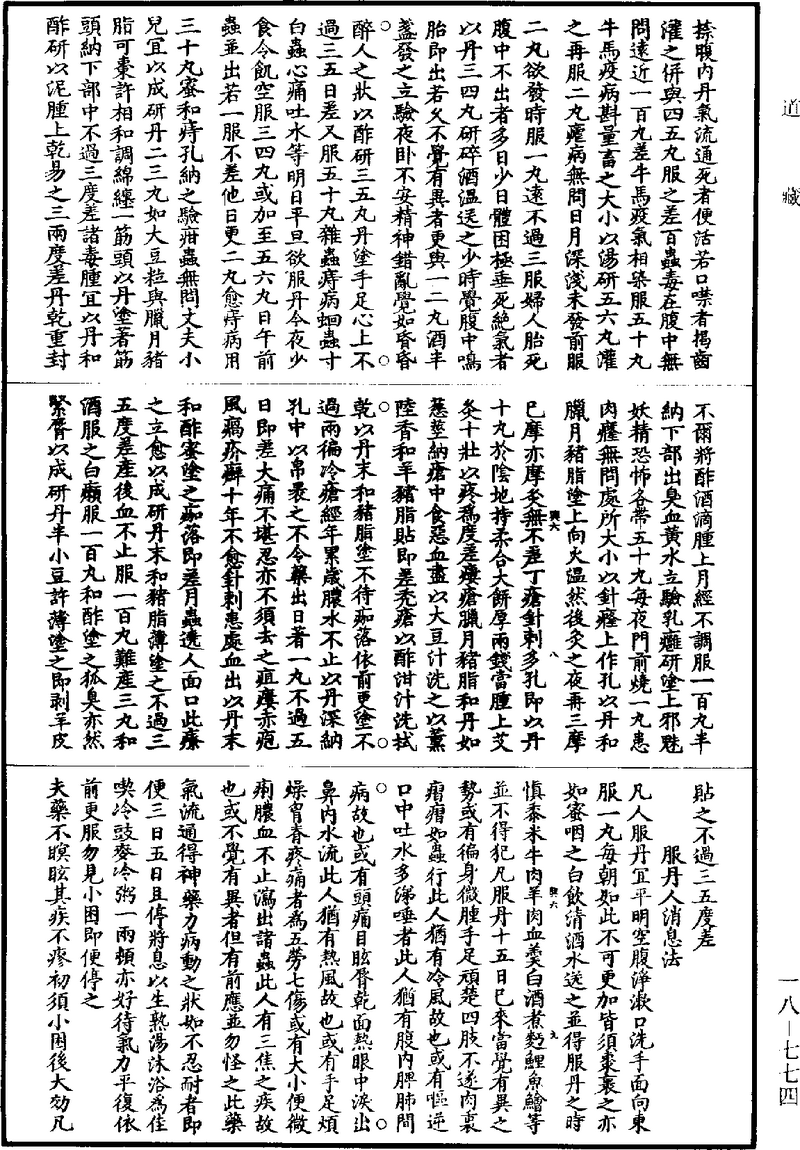 道藏
捺腹內丹氣流通死者便活若口噤者揭齒
灌之併與四五丸服之差百蟲毒在腹中無
問遠近一百丸差牛馬疫氣相染服五十丸
牛馬疫病斟量畜之大小以湯研五六丸灌
之再服二丸瘧病無問日月深淺未發前服
二丸欲發時服一丸遠不過三服婦人胎死
腹中不出者多日少日體困極垂死絶氣者
以丹三四丸研碎酒溫送之少時覺腹中鳴
胎即出若久不覺有異者更與一二丸酒半
盞發之立驗夜卧不安精神錯亂覺如昏昏
醉人之狀以酢研三五丸丹塗手足心上不
過三五日差又服五十丸雜蟲痔病蛔蟲寸
白蟲心痛吐水等明日平旦欲服丹今夜少
食令飢空服三四丸或加至五六丸日午前
蟲並出若一服不差他日更二丸愈痔病用
三十丸蜜和痔孔納之驗疳蟲無問丈夫小
兒冝以成研丹二三丸如大豆粒與臘月豬
脂可棗許相和調綿纏一筋頭以丹塗著筋
頭納下部中不過三度差諸毒腫冝以丹和
酢研以泥腫上乾易之三兩度差丹乾重封
不爾將酢酒滴腫上月經不調服一百丸半
納下部出臭血黃水立驗乳癰研塗上邪魅
妖精恐怖各帶五十丸每夜門前燒一丸患
肉癭無問處所大小以針癭上作孔以丹和
臘月豬脂塗上向火溫然後灸之夜再三摩
已摩亦摩灸無不差丁瘡針刺多孔即以丹
十九於陰地持柔合大餅厚兩錢當腫上艾
灸十壯以疼爲度差瘻瘡臘月豬脂和丹如
葱莖納瘡中食惡血盡以大豆汁洗之以薰
陸香和羊豬脂貼即差禿瘡以酢泔汁洗拭
乾以丹末和豬脂塗不待痂落依前更塗不
過兩徧冷瘡經年累歲膿水不止以丹深納
孔中以帛裹之不令藥出日著一丸不過五
日即差大痛不堪忍亦不須去之疽瘻赤疱
風瘑疥癬十年不愈針刺患處血出以丹末
和酢蜜塗之痂落即差月蟲遶人面口此療
之立愈以成研丹末和豬脂薄塗之不過三
五度差產後血不止服一百丸難產三丸和
酒服之白癩服一百丸和酢塗之狐臭亦然
緊脣以成研丹半小豆許薄塗之即剥羊皮
貼之不過三五度差
服丹人消息法
凡人服丹冝平明空腹淨漱口洗手面向東
服一丸每朝如此不可更加皆須棗裹之亦
如蜜咽之白飲清酒水送之並得服丹之時
慎黍米牛肉羊肉血羮白酒煮麪鯉魚鱠等
並不得犯凡服丹十五日已來當覺有異之
勢或有徧身微腫手足頑楚四肢不遂肉裏
㿔㿔如蟲行此人猶有冷風故也或有嘔逆
口中吐水多涕唾者此人猶有腹內脾肺間
病故也或有頭痛目眩脣乾面熱眼中淚出
鼻內水流此人猶有熱風故也或有手足煩
燥胷脊疼痛者爲五勞七傷或有大小便微
痢膿血不止瀉出諸蟲此人有三焦之疾故
也或不覺有異者但有前應並勿怪之此藥
氣流通得神藥力病動之狀如不忍耐者即
便三日五日且停將息以生熟湯沐浴爲佳
喫冷豉麥冷粥一兩頓亦好待氣力平復依
前更服勿見小困即便停之
夫藥不瞑眩其疾不瘳初須小困後大効凡
一八—七七四